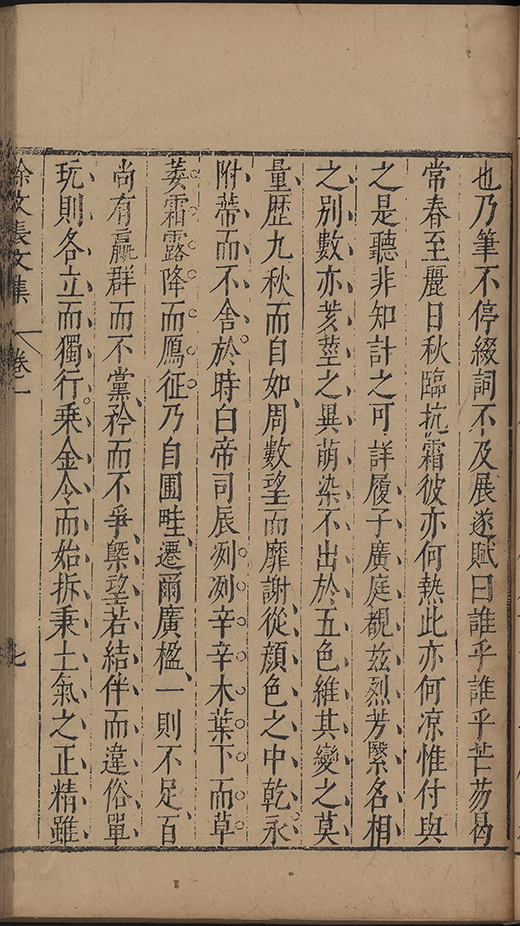 也乃筆不停綴詞不及展遂賦曰誰乎誰乎芒芴曷
常春至麗日秋臨抗霜彼亦何熱此亦何凉惟付與
之是聽非知計之可詳履子廣庭覩兹烈芳繄名相
之别數亦荄莖之異萌染不出於五色維其變之莫
量歷九秋而自如周數望而靡謝從顔色之中乾永
附蒂而不舍於時白帝司辰冽冽辛辛木葉下而草
萎霜露降而鴈征乃自圃畦遷爾廣楹一則不足百
尚有贏群而不黨矜而不爭槩望若結伴而違俗單
玩則各立而獨行乘金令而始拆秉土氣之正精雖
徐文長文集 卷一 七